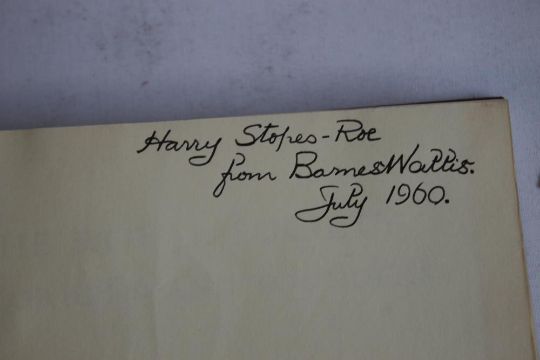 Harry Stopes-Roe
from Barnes Wallis.
July 1960.